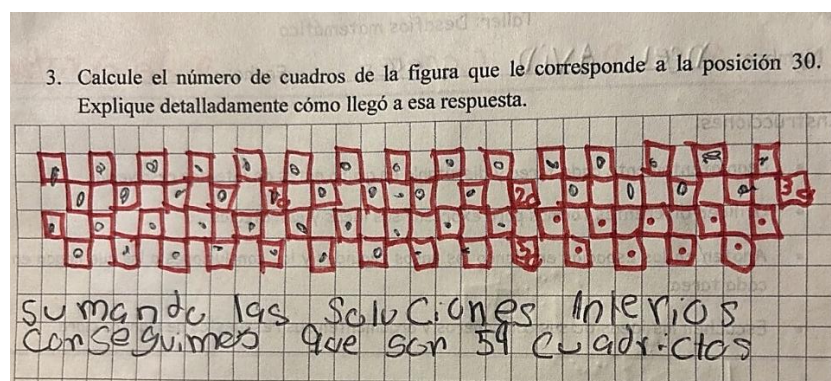 3. Calcule el número de cuadros de la figura que le corresponde a la posición 30.
Explique detalladamente cómo llegó a esa respuesta.
10 20 30
30
sumando las Soluciones Interios
conseguimos que son 59 cuadrictos